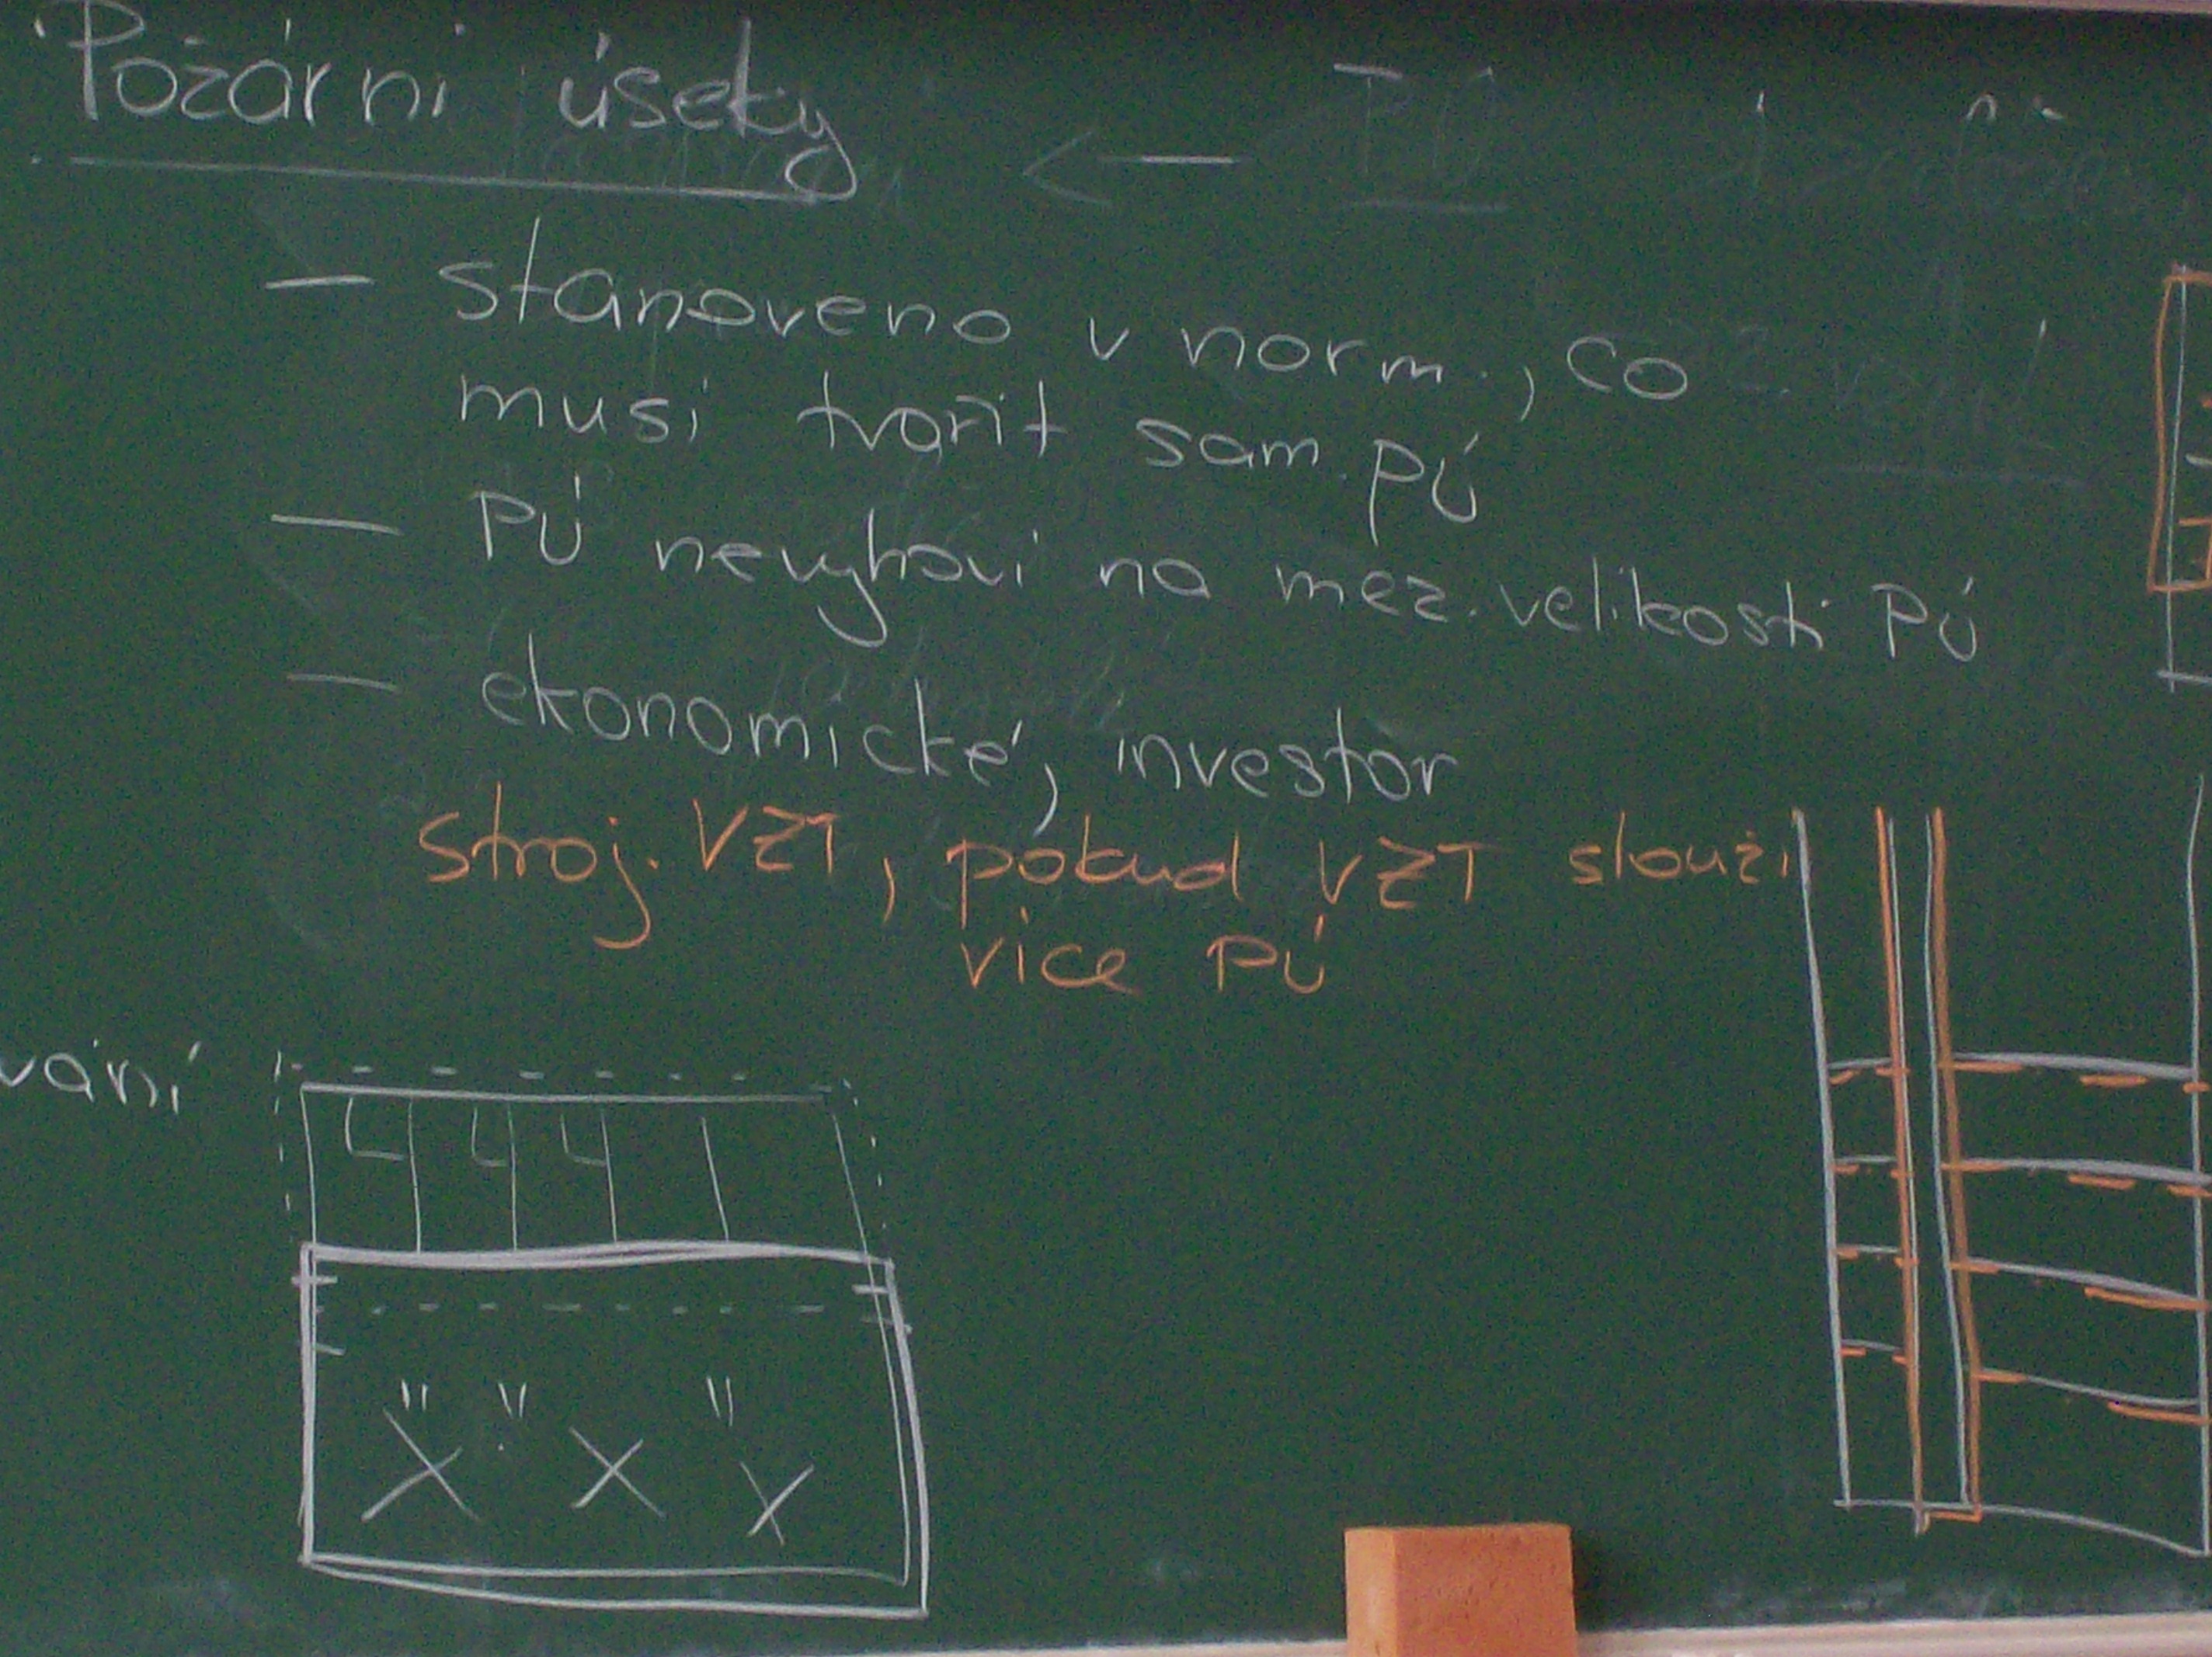 Požární úseky
– stanoveno v norm., co
musí tvořit sam. PÚ
– PÚ nevyhoví na mez. velikosti PÚ
– ekonomické, investor
stroj. VZT, pokud VZT slouží
více PÚ
vání